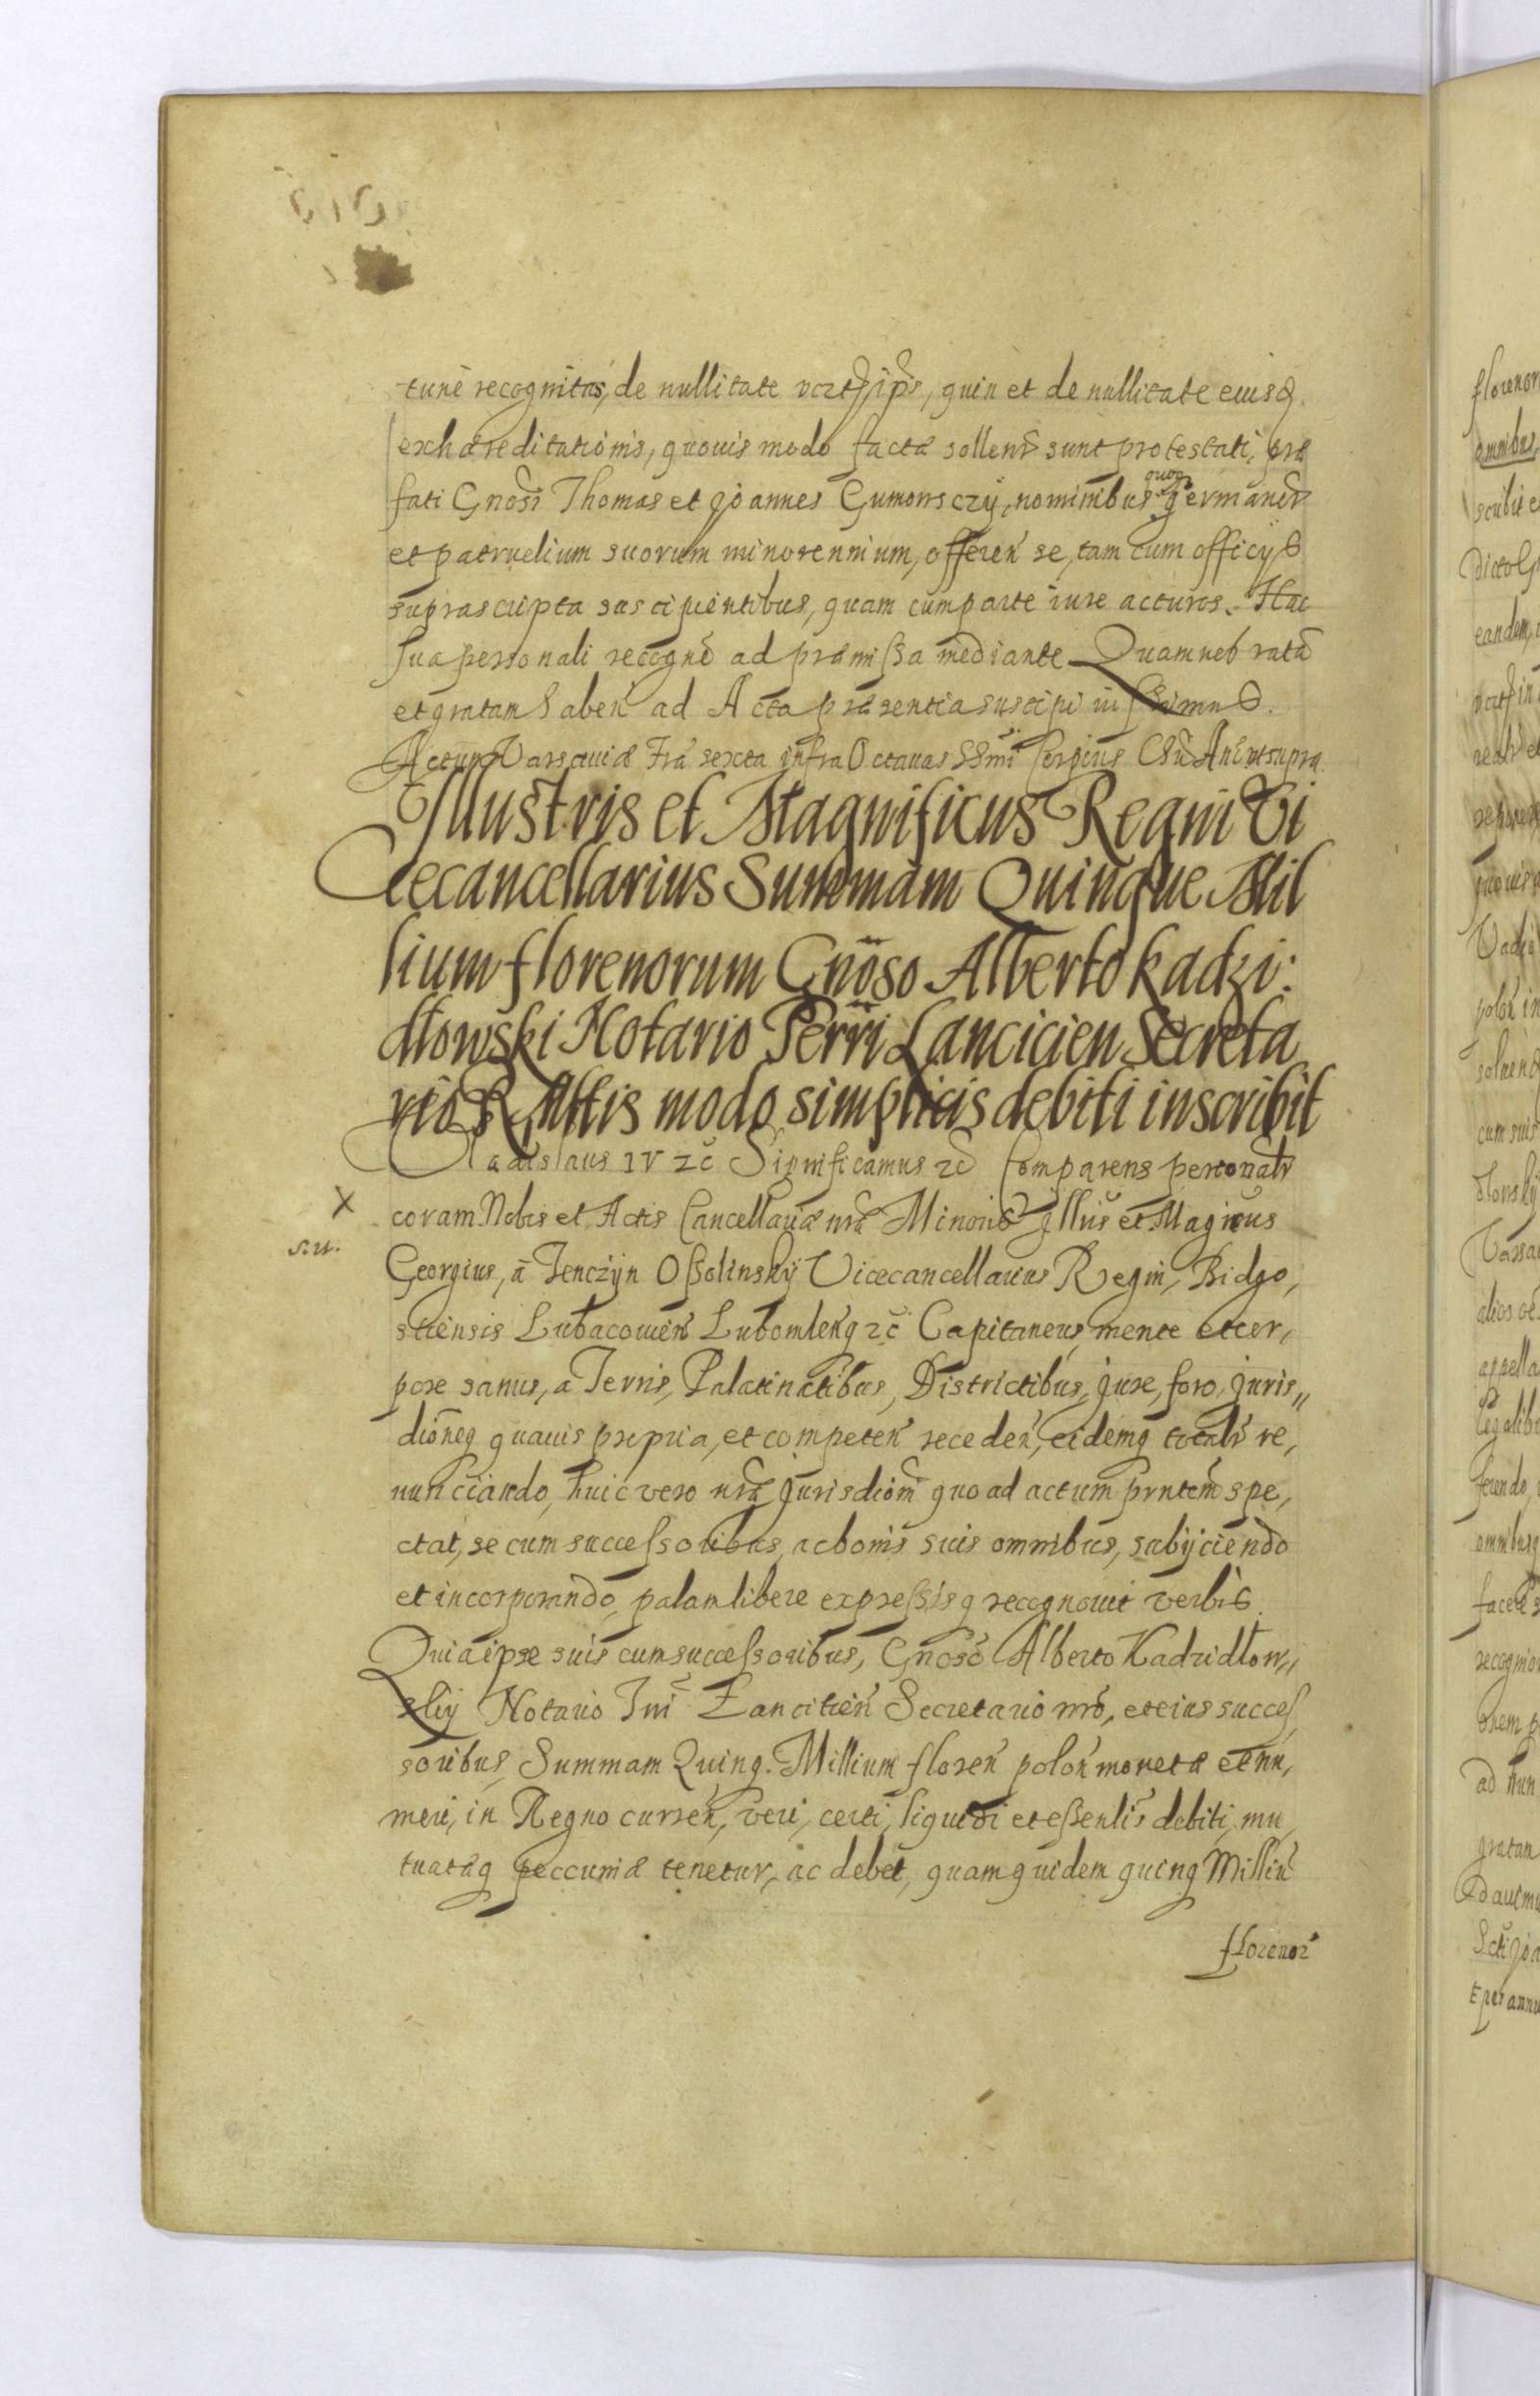 tunc recognitas, de nullitate ipsis, quin et de nullitate eiusd.
exhæreditationis, quouis modo factæ sollenr sunt protestati, præ
fati Gnosi Thomas et Joannes Gumowsczÿ, nominibus quoq germanor
et patruelium suorum minorennium, offeren se, tam cum officÿs
suprascripta suscipientibus, quam cum parte iure acturos. Hac
sua personali recogne ad præmissa mediante Quam nos ratã
et gratam haben ad Acta præsentia suscipi iussimus.
Actum Varsauiæ Fra sexta infra Octauas SSmi Corpius Chri An ut supra.
Illustris et Magnificus Regni Vi
cecancellarius Summam Quinque Mil
lium florenorum Gnoso Alberto Kadzi:
dłowski Notario Terri Lancicien Secreta
rio R Mttis modo simplicis debiti inscribit
Vladislaus IV zc Significamus zc Comparens personalr
X coram Nobis et Actis Cancellariæ nræ Minoris Illus et Magicus
s.u.
Georgius, a Tenczÿn Ossolinskÿ Vicecancellarius Regni, Bidgo,
stiensis Lubacouien Lubomlenq zc Capitaneus, mente et cor,
pore sanus, a Terris, Palatinatibus, Districtibus, Jure, foro, Juris„
dioneq quauis propria, et competen receden, eidemq totalr re,
nunciando, huic vero nræ Jurisdioni quo ad actum pntem spe,
ctat, se cum successoribus, ac bonis suis omnibus, subÿciendo
et incorporando, palam libere expressisq recognouit verbis.
Quia ipse suis cum successoribus, Gnoso Alberto Kadzidłow„
skiÿ Notario Tri Lancitien Secretario nro, et eius succes
soribus, Summam Quinq. Millium floren polon monetæ et nu,
meri, in Regno curren, veri, certi, liquidi et essenlis debiti, mu
tuatæq peccuniæ tenetur, ac debet, quam quidem quinq Milliu
florenor